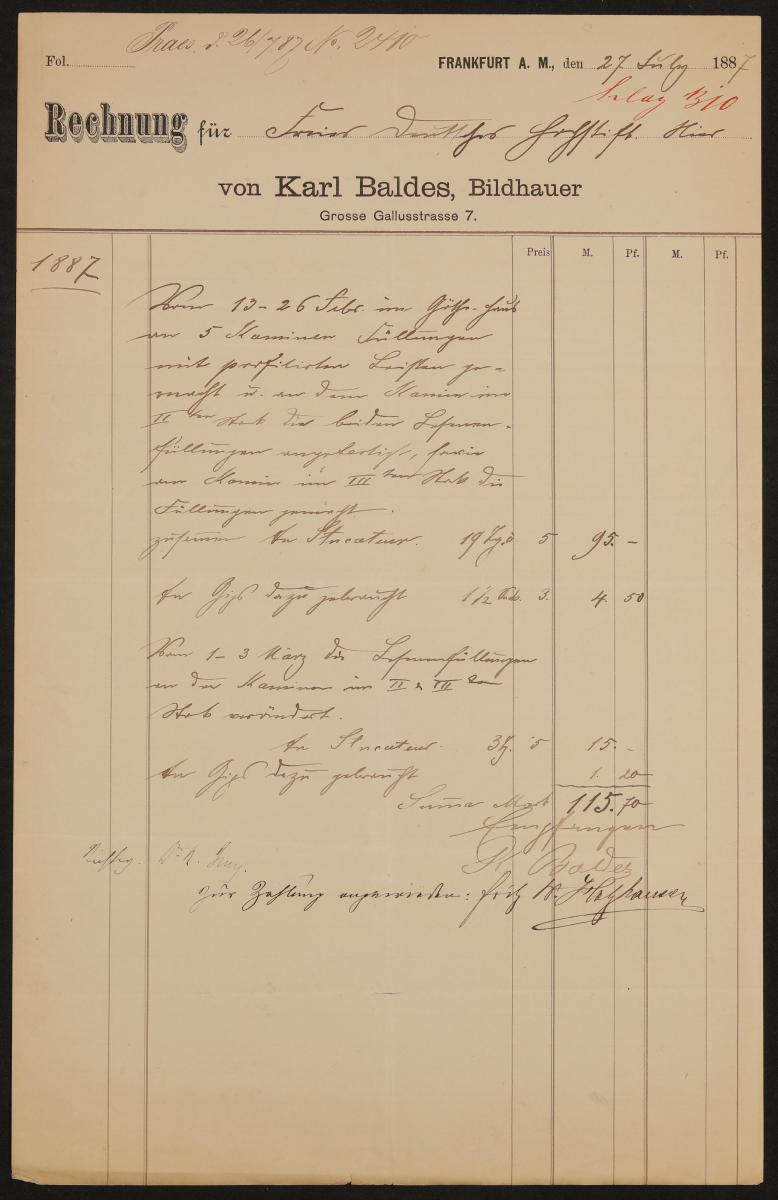 Praes. d. 26/7 87 No. 2410
Fol.
FRANKFURT A. M., den 27 July 1887
Beleg 310
Rechnung für Freies Deutsches Hochstift Hier
von Karl Baldes, Bildhauer
Grosse Gallusstrasse 7.
Preis M. Pf. M. Pf.
1887
Vom 13-26 Febr. im Göthe-Haus
an 5 Kaminen Füllungen
mit profilirten Leisten ge-
macht u. an dem Kamin im
II ten Stok die beiden Lesenen-
füllungen angefertigt, sowie
am Kamin im III ten Stok die
Füllungen gemacht.
zusammen An Stucateur. 19 Tg. 5 95. -
An Gips dazu gebraucht 1 1/2 3. 4 50
Vom 1-3 März die Lesenenfüllungen
an den Kaminen im II & III ten
Stok verändert.
An Stucateur. 3 Tg. 5 15. -
An Gips dazu gebraucht 1. 20
Summa Mark 115.70
Empfangen
K. Baldes
Richtig.
zur Zahlung angewiesen: Fritz v. Holzhausen